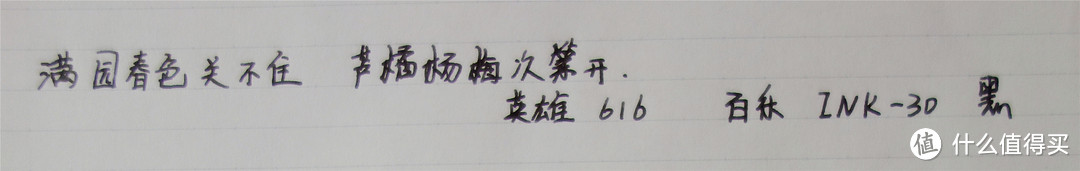 满园春色关不住 芦橘杨梅次第开.
英雄 616 百乐 INK-30 黑
值 什么值得买